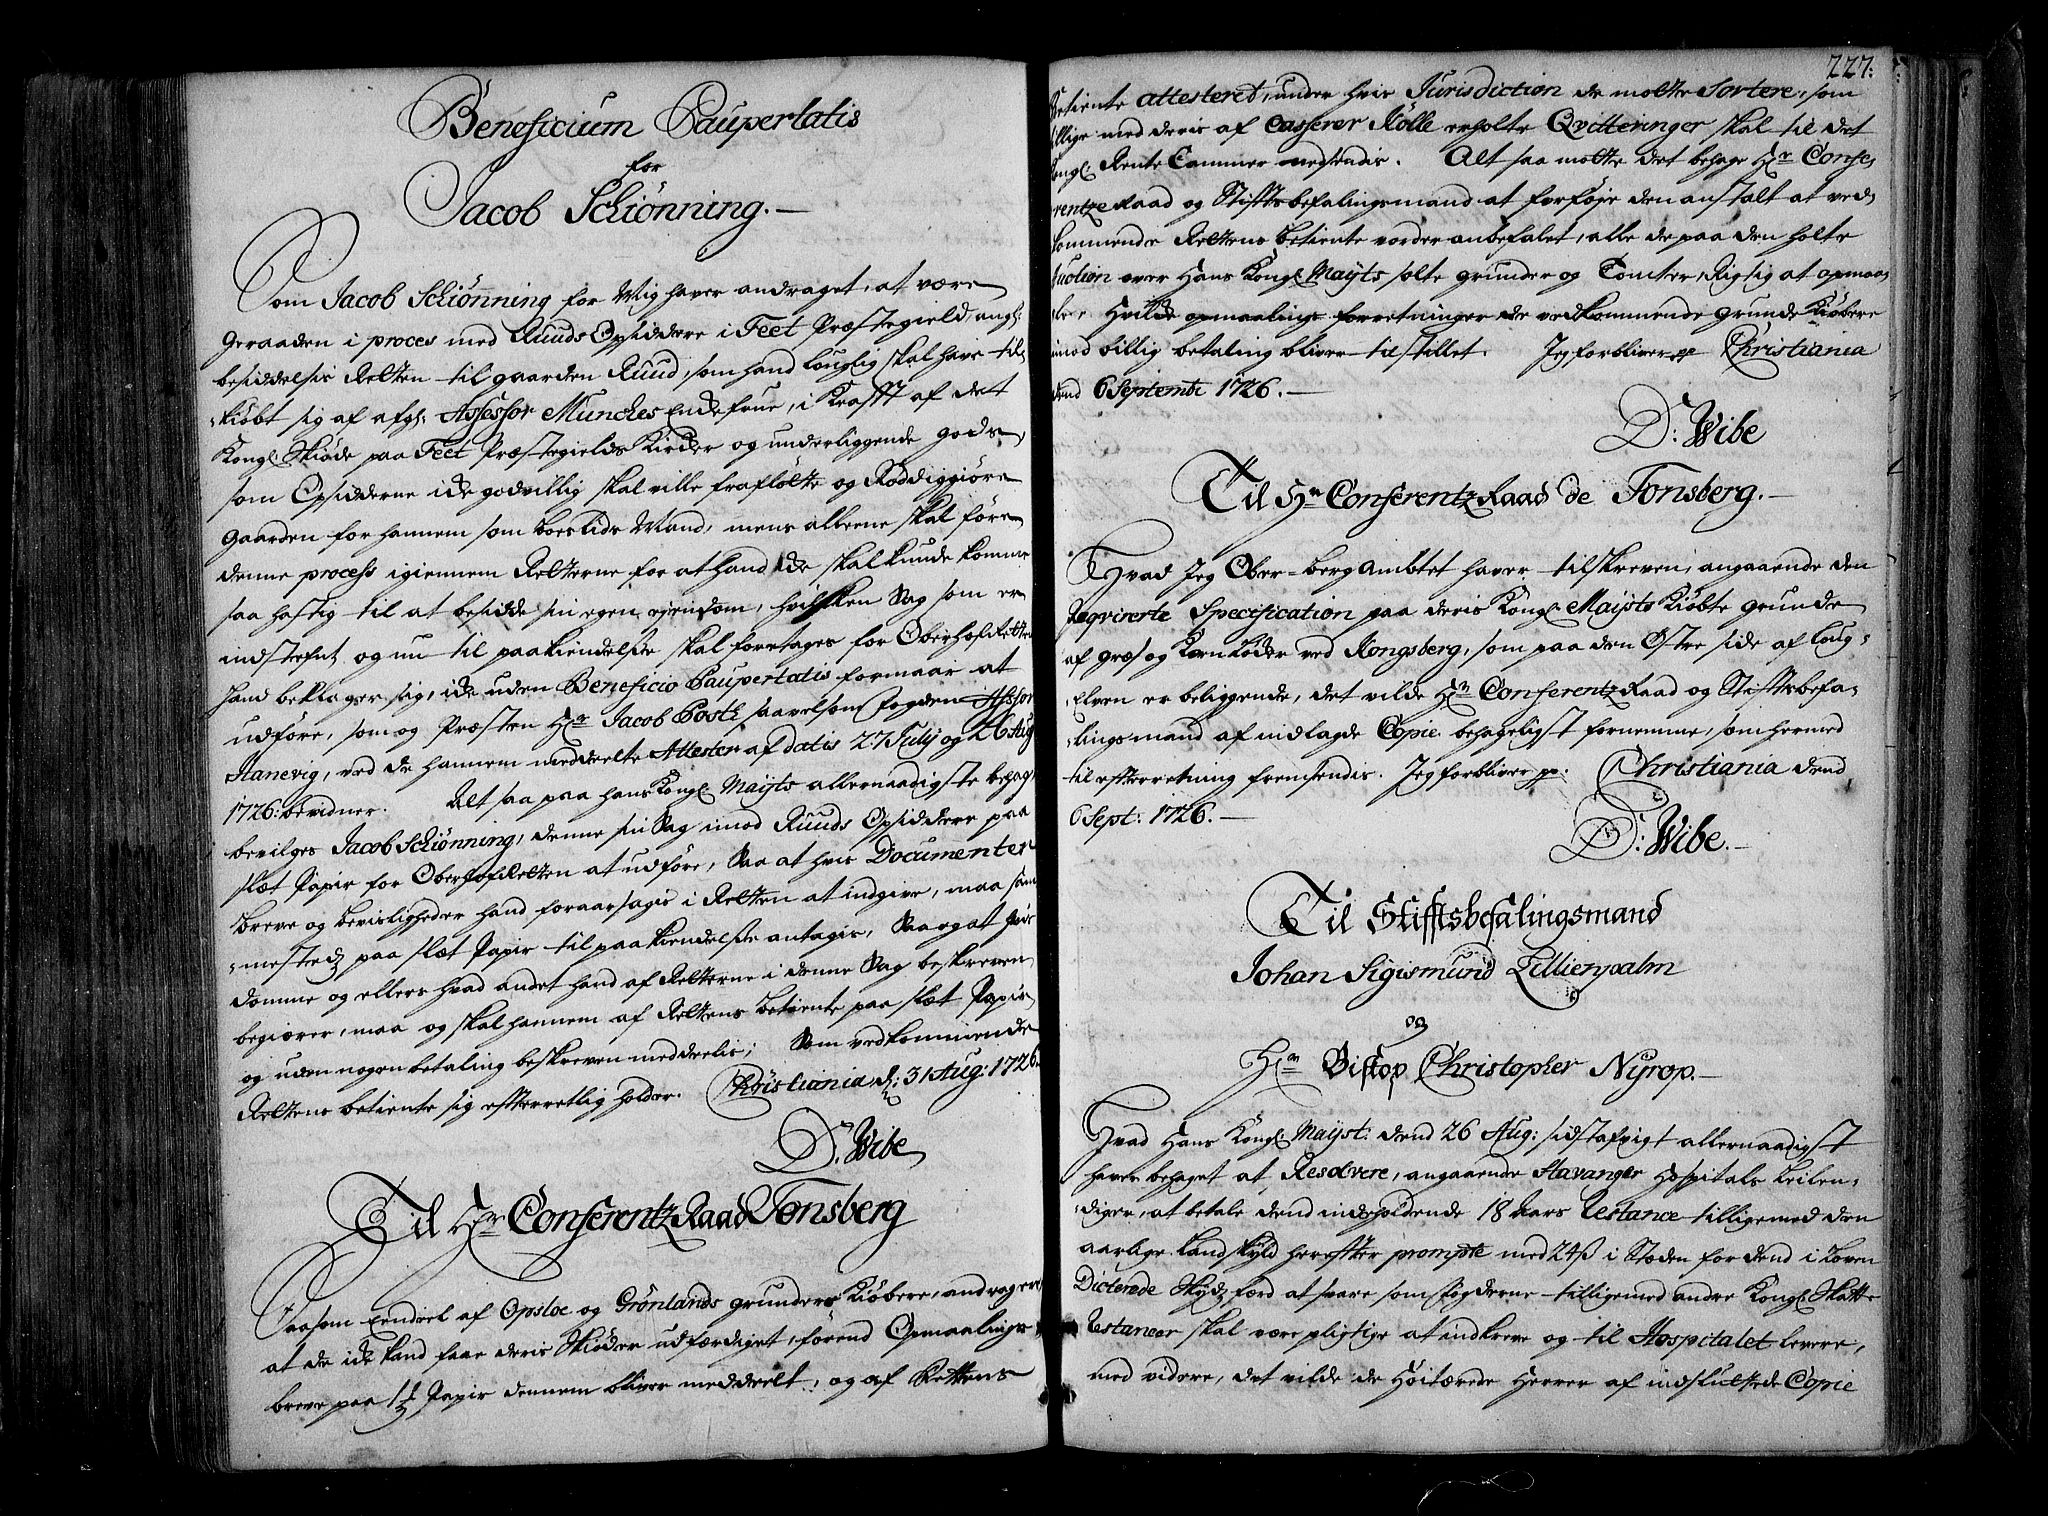 Beneficium Paupertatis
for
Jacob Schiønning.
Som Jacob Schiønning for Mig haver andraget, at være
geraaden i proces med Ruuds Opsiddere i Feet Præstegield, ang:
besiddelsis Retten til gaarden Ruud, som hand louglig skal have til-
kiøbt sig af afg: Assessor Munches Encke frue, i Krafft af det
Kongl: Skiøde paa Feet Præstegields Kircker og underliggende gods,
som Opsidderne icke godvillig skal ville fraflötte og Röddiggiøre
gaarden for hannem som boesLids Mand, mens alleene skal före
denne process igiennem Retterne for at hand icke skal kunde komme
saa hastig til at besidde sin egen ejendom, hvilcken Sag som er
indstefnt og nu til paakiendelsse skal foretages for OberhofRetten
hand beklager sig, icke uden Beneficio Paupertatis formaar at
udföre, som og Præsten Hr Jacob Post saavelsom fogden Assessor
Stanevig, ved de hannem meddeelte Attester af datis 27 July og 26 Aug
1726: bevidner. Alt saa paa hans Kongl: Mayts allernaadigste behag
bevilges Jacob Schiønning, denne sin Sag imod Ruuds Opsiddere paa
slæt Papir for OberhofRetten at udföre, Saa at hvis Documenter
breve og bevisligheder hand foraarsagis i Retten at indgive, maa sam-
mesteds paa slæt Papir til paakiendelsse antagis, Saa og at hvis
domme og ellers hvad andet hand af Retterne i denne Sag beskreven
begiærer, maa og skal hannem af Rettens betiente paa slæt Papir
og uden nogen betaling beskreven meddeelis; Som vedkommende
Rettens betiente sig efterretlig holder. Christiania, d: 31 Aug: 1726.
D. Wibe
Til Hr ConferentzRaad Tonsberg
Saasom Eendeel af Opsloe og Grönlands grunders Kiøbere, andrager
at de icke kand faae deris Skiøder udfærdiget, förend Opmaalings
breve paa 1½ Papir dennem bliver meddeelt, og af Rettens
227:
betiente attesteret, under hvis Jurisdiction de motte Sortere, som
tillige med deris af Casserer Rölle erholte Qvitteringer skal til det
Kongl: Rente Cammer nedsendis. Alt saa motte det behage Hr Confe-
rentzeRaad og Stifftsbefalingsmand at forføje den anstalt at ved-
kommende Rettens betiente vorder anbefalet, alle de paa den holte
Auction over Hans Kongl Mayts solte grunder og Tomter, Rigtig at opmaa-
le, Hvilcke opmaalings forretninger de vedkommende grunde Kiøbere
imod billig betaling bliver tilstillet. Jeg forbliver pp Christiania
dend 6 Septembr 1726.
D: Wibe
Til Hr ConferentzRaad de Tonsberg.
Hvad Jeg Ober-bergAmbtet haver tilskreven, angaaende den
Reqvirerte Specification paa deris Kongl: Maysts Kiøbte grunde
af græs og Korn Løcker ved Kongsberg, som paa den Østre side af Loug-
Elven er beliggende, det vilde Hr ConferentzRaad og Stifftsbefa-
lingsmand af indlagde Copie behageligst fornemme, som hermed
til effterretning fremsendis. Jeg forbliver pp: Christiania dend
6 Sept: 1726.
D: Wibe.
Til Stifftsbefalingsmand
Johan Sigismund Lillienpalm
og
Hr Biskop Christopher Nyrop.
Hvad Hans Kongl: Mayst: dend 26 Aug: sidstafvigt allernaadigst
haver behaget at Resolvere, angaaende Stavanger Hospitals Leilen-
diger, at betale dend indeholdende 18 Aars Restance tilligemed den
aarlige Landskyld hereffter prompte med 24 ß i Steden for dend i Loven
Dicterede Skydsferd at svare som fogderne tilligemed andre Kongl: Skatte
Restancer skal være pligtige at indkreve og til Hospitalet levere,
med videre, det vilde de Høitærede Herrer af indsluttede Copie